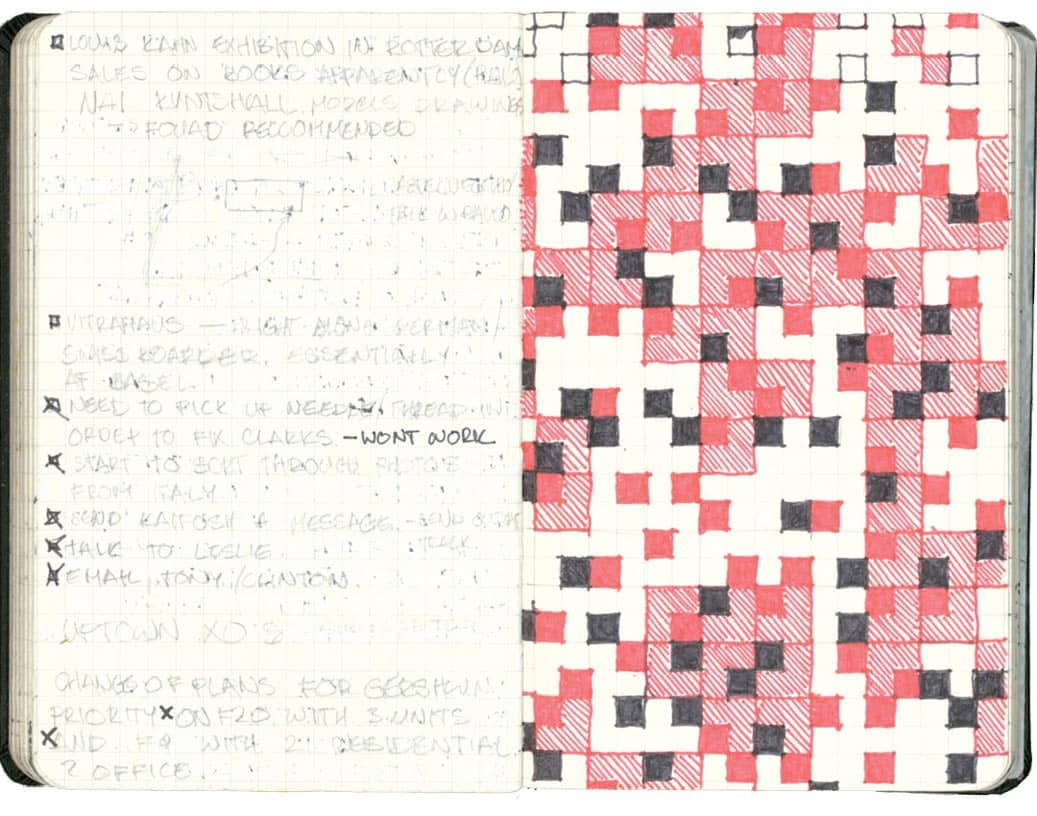 LOUIS KAHN EXHIBITION IN ROTTERDAM
SALES ON BOOKS APPARENTLY
NAI KUNTSHALL MODELS DRAWINGS
FOUAD RECCOMMENDED
VITRAHAUS — RIGHT ALONG GERMAN/
SWISS BOARDER. ESSENTIALLY
AT BASEL.
NEED TO PICK UP NEEDLE/THREAD IN
ORDER TO FIX CLARKS. - WONT WORK
START TO EDIT THROUGH PHOTOS
FROM ITALY.
SEND A MESSAGE. - SEND
TALK TO LESLIE.
EMAIL TONY/CLINTON.
UPTOWN XD'S
CHANGE OF PLANS FOR GERSHWIN
PRIORITY ON F20 WITH 3 UNITS
AND F9 WITH 2 RESIDENTIAL
2 OFFICE.